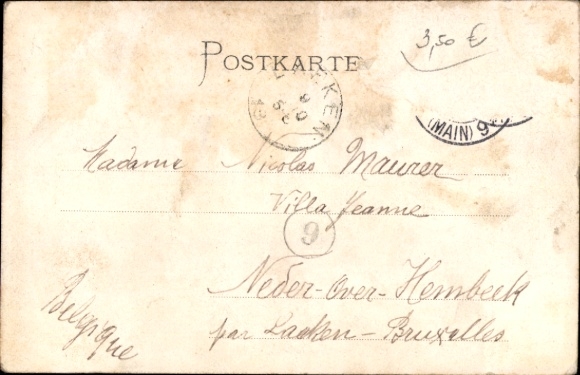 3,50 €
POSTKARTE
LAEKEN
(MAIN) 9
Madame Nicolas Maurer
Villa Jeanne
9
Neder-Over-Hembeek
par Laeken-Bruxelles
Belgique